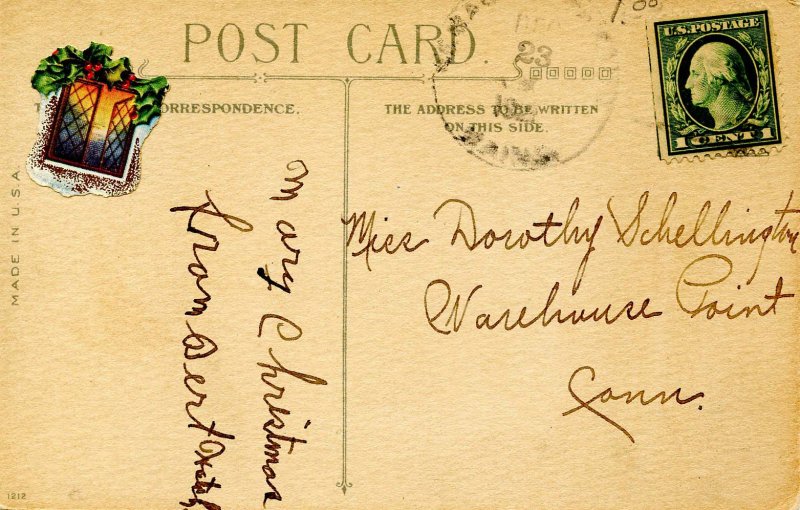 POST CARD.
CORRESPONDENCE.
THE ADDRESS TO BE WRITTEN
ON THIS SIDE.
23
U.S. POSTAGE
1 CENT 1
MADE IN U.S.A.
Mary Christmas
from Bert
Miss Dorothy Schellington
Warehouse Point
Conn.
1212